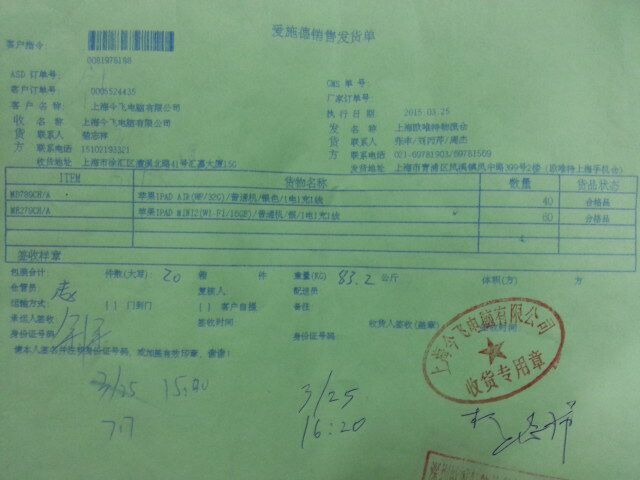 爱施德销售发货单
客户指令:
0081978188
ASD 订单号:
客户订单号: 0005524435
OMS 单号:
厂家订单号:
客户名称: 上海今飞电脑有限公司
执行日期 2015.03.25
收 名 称 上海今飞电脑有限公司
发 名 称 上海欧唯特物流仓
货 联系人
货 联系人
方 联系电话 15102193321
方 联系电话 021-69781903/69781569
收货地址 上海市徐汇区漕溪北路41号汇嘉大厦15G
发货地址 上海市青浦区凤溪镇凤中路399号2楼 (欧唯特上海手机仓)
ITEM 货物名称 数量 货品状态
MD789CH/A 苹果IPAD AIR(WF/32G)/普通机/银色/1电1充1线 40 合格品
ME279CH/A 苹果IPAD MINI2(WI-FI/16GB)/普通机/银/1电1充1线 60 合格品
签收样章
包装合计: 件数(大写): 20 箱 件 重量(KG) 83.2 公斤 体积(方) 方
仓管员 复核人: 配送员
运输方式: [ ] 门到门 [ ] 客户自提 备注
承运人签收 签收时间 收货人签收(盖章) 签收时间:
身份证号码: 身份证号码:
请本人签名并注明身份证号码, 或加盖有效印章, 谢谢!
上海今飞电脑有限公司
收货专用章
3/25 15:00
3/25
16:20